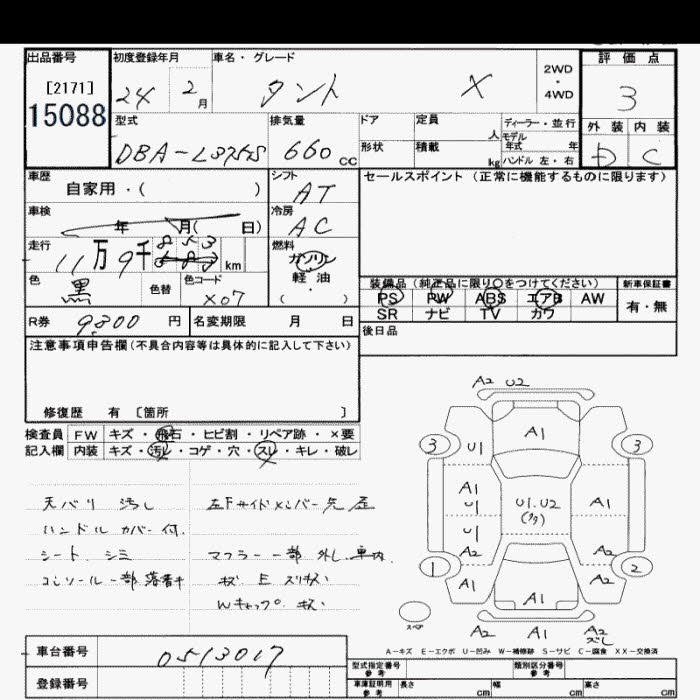 出品番号
[2171]
15088
初度登録年月
24 2月
車名・グレード
タント X
2WD
・
4WD
評価点
3
外装 内装
D C
型式
DBA-L375S
排気量
660 CC
ドア
形状
定員
人
積載
kg
ディーラー・並行
モデル
年式 年
ハンドル 左・右
車歴
自家用・( )
シフト
AT
車検
年 月( 日)
冷房
AC
走行
11万9千853 km
燃料
ガソリン
軽・油
( ・ )
色
黒
色替
色コード
X07
R券 9,800 円
名変期限 月 日
セールスポイント(正常に機能するものに限ります)
装備品(純正品に限り○をつけてください)
PS PW ABS エアB AW
SR ナビ TV カワ
新車保証書
有・無
後日品
注意事項申告欄(不具合内容等は具体的に記入して下さい)
修復歴 有 〔箇所 〕
検査員 FW キズ・飛石・ヒビ割・リペア跡・×要
記入欄 内装 キズ・汚レ・コゲ・穴・スレ・キレ・破レ
天バリ 汚し
ハンドル カバー 付.
シート シミ
コンソール 一部 落書キ
左Fサイドメンバー先 歪
マフラー 一部 外し 車内
A2 U2
3 A1 3
U1
A1
U1
U1
A2
U1.U2
A1
A2
1 A1 A2 2
A1
スペア
A2 A1 A2
A-キズ E-エクボ U-凹み W-補修跡 S-サビ C-腐食 XX-交換済
車台番号 0513017
登録番号
型式指定番号
参考
類別区分番号
参考
車庫証明用
参考
長さ cm 幅 cm 高さ cm